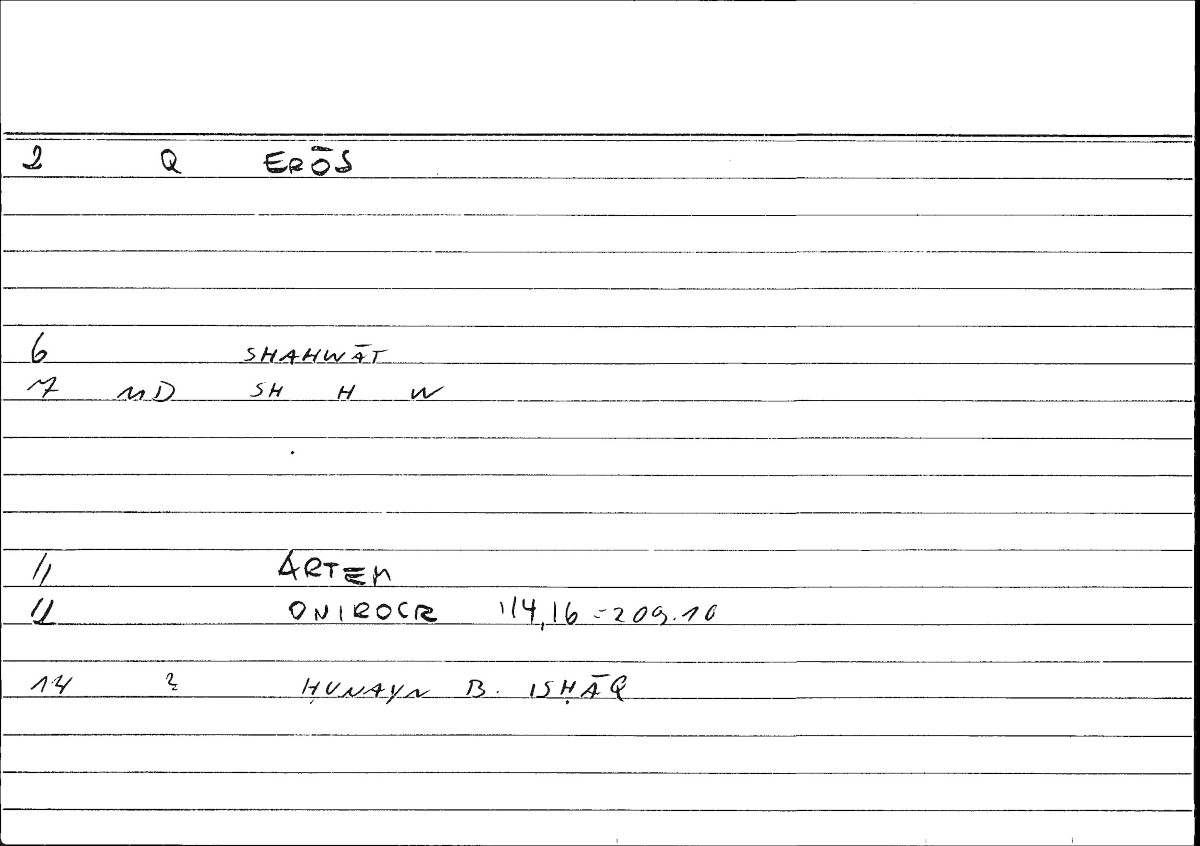 2 Q ERŌS
6 SHAHWĀT
7 MD SH H W
11 ARTEM
11 ONIROCR 114,16 = 209.10
14 ḤUNAYN B. ISḤĀQ